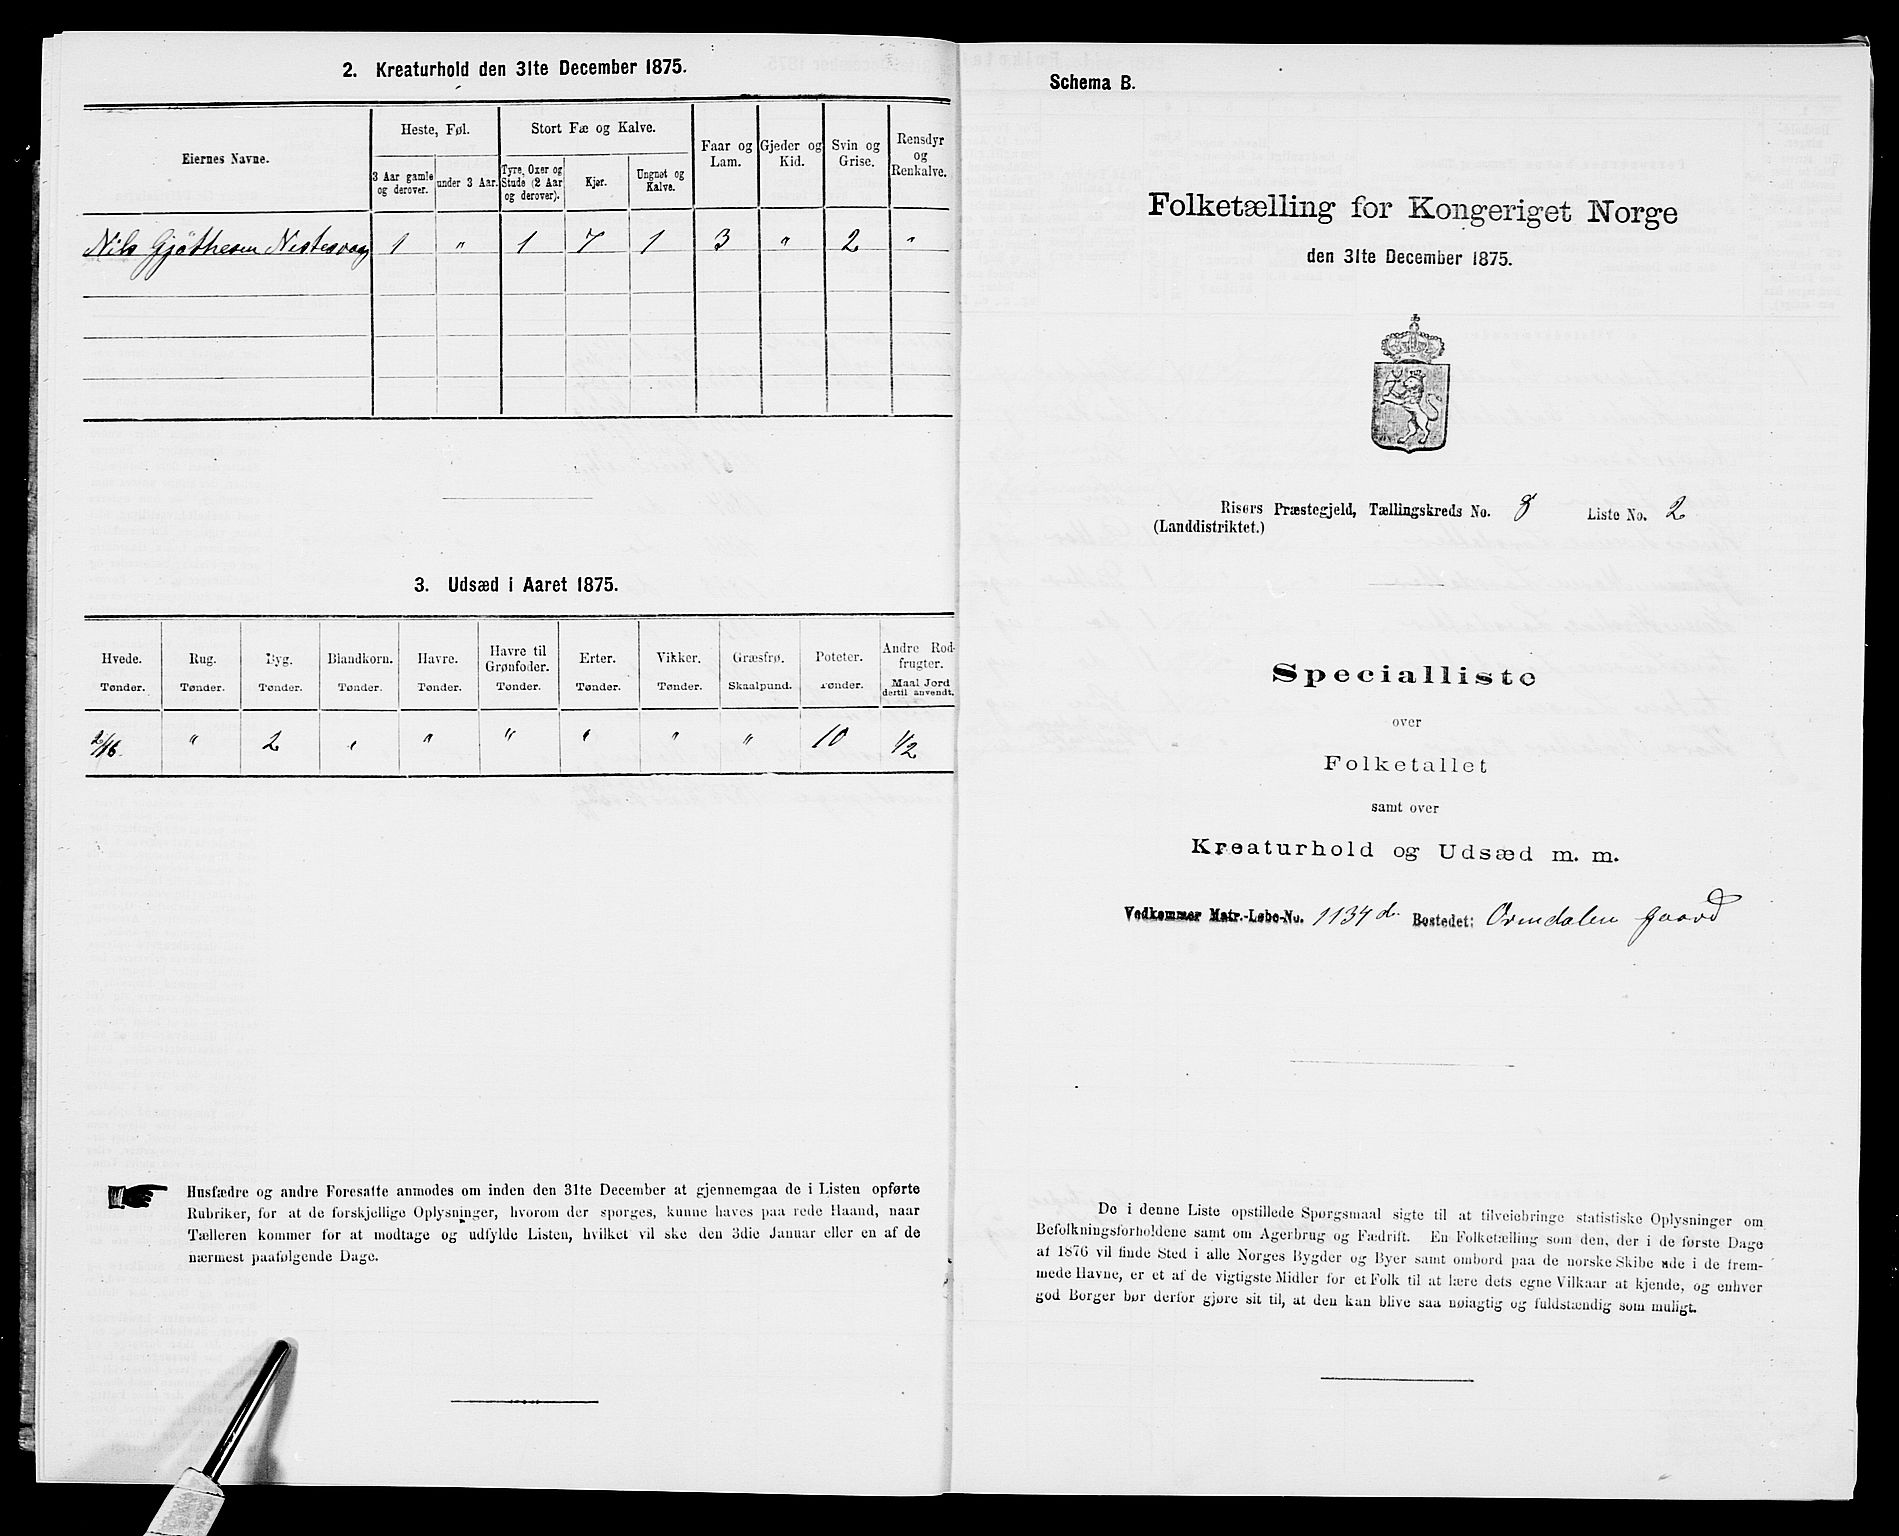 2. Kreaturhold den 31te December 1875.
Eiernes Navne.
Heste, Føl.
Stort Fæ og Kalve.
Faar og Lam.
Gjeder og Kid.
Svin og Grise.
Rensdyr og Renkalve.
3 Aar gamle og derover.
under 3 Aar.
Tyre, Oxer og Stude (2 Aar og derover).
Kjør.
Ungnøt og Kalve.
Nils 1 " 1 7 1 3 " 2 "
3. Udsæd i Aaret 1875.
Hvede. Rug. Byg. Blandkorn. Havre. Havre til Grønfoder. Erter. Vikker. Græsfrø. Poteter. Andre Rodfrugter.
Tønder. Tønder. Tønder. Tønder. Tønder. Tønder. Tønder. Tønder. Skaalpund. Tønder. Maal Jord dertil anvendt.
2/16 " 2 " " " " " " 10 1/2
Husfædre og andre Foresatte anmodes om inden den 31te December at gjennemgaa de i Listen opførte
Rubriker, for at de forskjellige Oplysninger, hvorom der spørges, kunne haves paa rede Haand, naar
Tælleren kommer for at modtage og udfylde Listen, hvilket vil ske den 3die Januar eller en af de
nærmest paafølgende Dage.
Schema B.
Folketælling for Kongeriget Norge
den 31te December 1875.
Risørs Præstegjeld, Tællingskreds No. 8 Liste No. 2
(Landdistriktet.)
Specialliste
over
Folketallet
samt over
Kreaturhold og Udsæd m. m.
Vedkommer Matr.-Løbe-No. 1134 d. Bostedet: Ormdalen gaard
De i denne Liste opstillede Spørgsmaal sigte til at tilveiebringe statistiske Oplysninger om
Befolkningsforholdene samt om Agerbrug og Fædrift. En Folketælling som den, der i de første Dage
af 1876 vil finde Sted i alle Norges Bygder og Byer samt ombord paa de norske Skibe ude i de frem-
mede Havne, er et af de vigtigste Midler for et Folk til at lære dets egne Vilkaar at kjende, og enhver
god Borger bør derfor gjøre sit til, at den kan blive saa nøiagtig og fuldstændig som muligt.